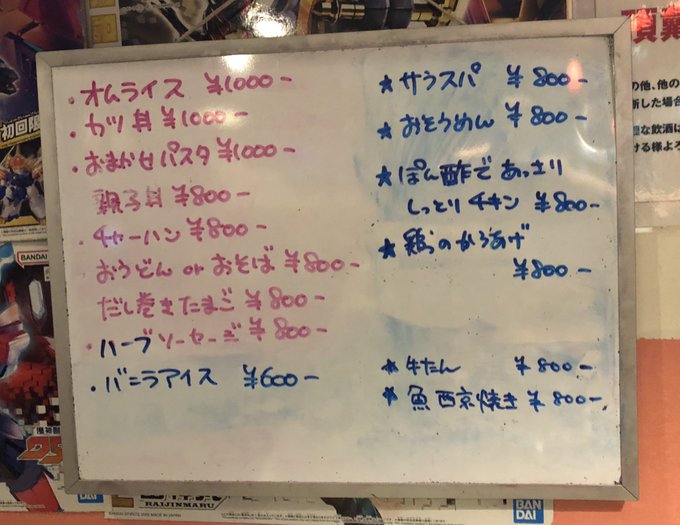 ・オムライス ¥1000-
・カツ丼 ¥1000-
・おまかせパスタ ¥1000-
親子丼 ¥800-
・チャーハン ¥800-
おうどん or おそば ¥800-
だし巻きたまご ¥800-
・ハーブソーセージ ¥800-
・バニラアイス ¥600-
★サラスパ ¥800-
★おそうめん ¥800-
★ぽん酢であっさり
しっとりチキン ¥800-
★鶏のからあげ
¥800-
★牛たん ¥800-
★魚西京焼き ¥800-
初回限
BANDAI
BAN
DAI
RAIJINMARU
BAN
DAI
頂戴
の他、他の
新した場合
な飲酒は
ける様よろ